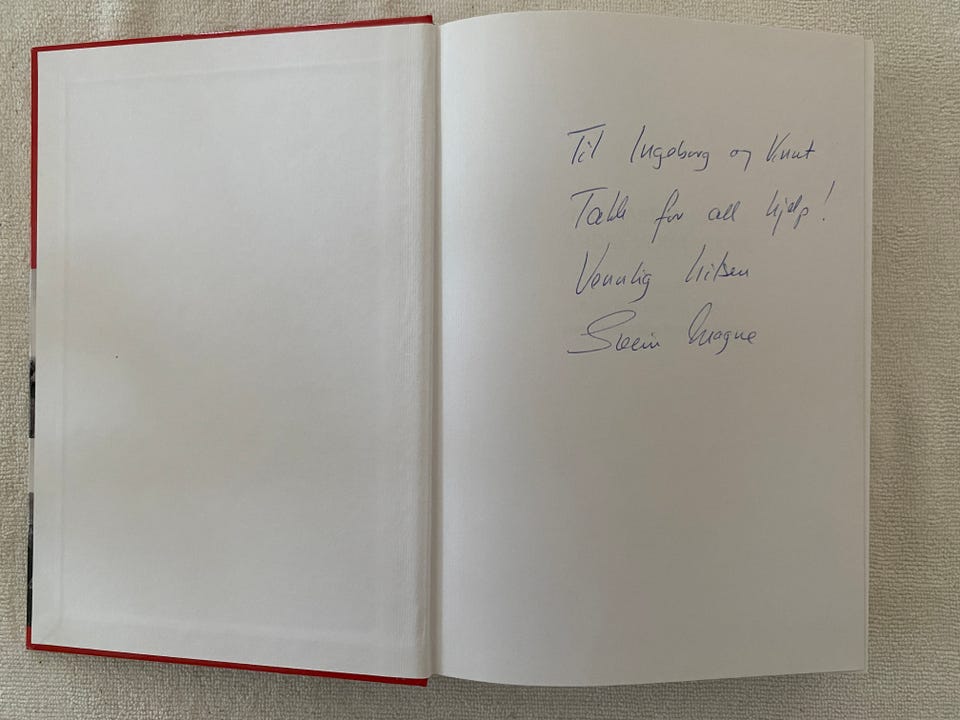 Til Ingeborg og Knut
Takk for all hjelp!
Vennlig hilsen
Svein Magne